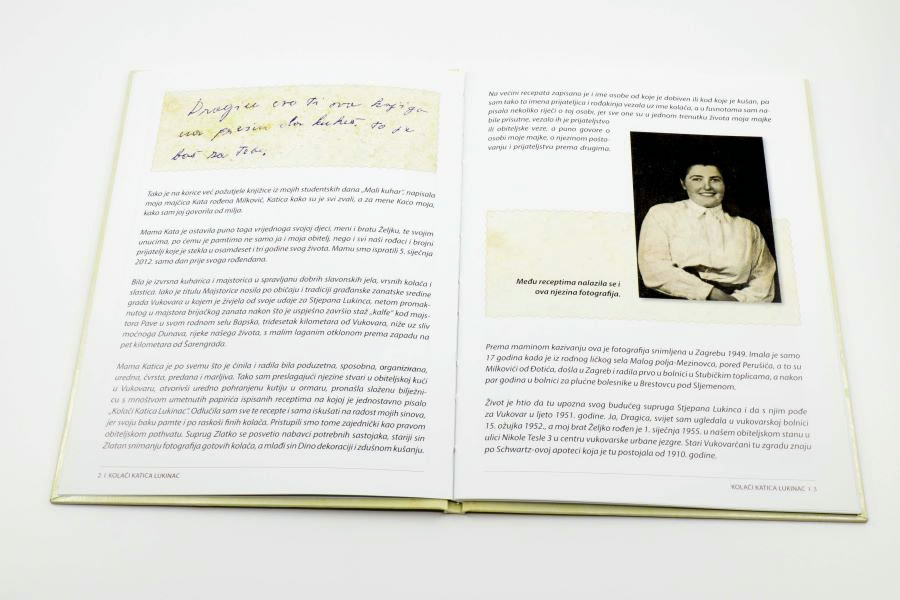 Dragice evo ti ova knjiga
pa kuhaš to je
baš za tebe.
Tako je na korice već požutjele knjižice iz mojih studentskih dana „Mali kuhar“, napisala
moja majčica Kata rođena Milković, Katica kako su je svi zvali, a za mene Kaćo moja,
kako sam joj govorila od milja.
Mama Kata je ostavila puno toga vrijednoga svojoj djeci, meni i bratu Željku, te svojim
unucima, po čemu je pamtimo ne samo ja i moja obitelj, nego i svi naši rođaci i brojni
prijatelji koje je stekla u osamdeset i tri godine svog života. Mamu smo ispratili 5. siječnja
2012. samo dan prije svoga rođendana.
Bila je izvrsna kuharica i majstorica u spravljanju dobrih slavonskih jela, vrsnih kolača i
slastica. Iako je titulu Majstorice nosila po običaju i tradiciji građanske zanatske sredine
grada Vukovara u kojem je živjela od svoje udaje za Stjepana Lukinca, netom promak-
nutog u majstora brijačkog zanata nakon što je uspješno završio staž „kalfe“ kod majs-
tora Pave u svom rodnom selu Bapska, tridesetak kilometara od Vukovara, niže uz sliv
moćnoga Dunava, rijeke našega života, s malim laganim otklonom prema zapadu na
pet kilometara od Šarengrada.
Mama Katica je po svemu što je činila i radila bila poduzetna, sposobna, organizirana,
uredna, čvrsta, predana i marljiva. Tako sam preslagajući njezine stvari u obiteljskoj kući
u Vukovaru, otvorivši uredno pohranjenu kutiju u ormaru, pronašla složenu bilježni-
cu s mnoštvom umetnutih papirića ispisanih receptima na kojoj je jednostavno pisalo
„Kolači Katica Lukinac“. Odlučila sam sve te recepte i sama iskušati na radost mojih sinova,
jer svoju baku pamte i po raskoši finih kolača. Pristupili smo tome zajednički kao pravom
obiteljskom pothvatu. Suprug Zlatko se posvetio nabavci potrebnih sastojaka, stariji sin
Zlatan snimanju fotografija gotovih kolača, a mlađi sin Dino dekoraciji i zdušnom kušanju.
2 | KOLAČI KATICA LUKINAC
Na većini recepata zapisano je i ime osobe od koje je dobiven ili kod koje je kušan, pa
sam tako ta imena prijateljica i rođakinja vezala uz ime kolača, a u fusnotama sam na-
pisala nekoliko riječi o toj osobi, jer sve one su u jednom trenutku života moje majke
bile prisutne, vezala ih je prijateljstvo
ili obiteljske veze, a puno govore o
osobi moje majke, o njezinom pošto-
vanju i prijateljstvu prema drugima.
Među receptima nalazila se i
ova njezina fotografija.
Prema maminom kazivanju ova je fotografija snimljena u Zagrebu 1949. Imala je samo
17 godina kada je iz rodnog ličkog sela Malog polja-Mezinovca, pored Perušića, a to su
Milkovići od Đotića, došla u Zagreb i radila prvo u bolnici u Stubičkim toplicama, a nakon
par godina u bolnici za plućne bolesnike u Brestovcu pod Sljemenom.
Život je htio da tu upozna svog budućeg supruga Stjepana Lukinca i da s njim pođe
za Vukovar u ljeto 1951. godine. Ja, Dragica, svijet sam ugledala u vukovarskoj bolnici
15. ožujka 1952., a moj brat Željko rođen je 1. siječnja 1955. u našem obiteljskom stanu u
ulici Nikole Tesle 3 u centru vukovarske urbane jezgre. Stari Vukovarčani tu zgradu znaju
po Schwartz-ovoj apoteci koja je tu postojala od 1910. godine.
KOLAČI KATICA LUKINAC | 3